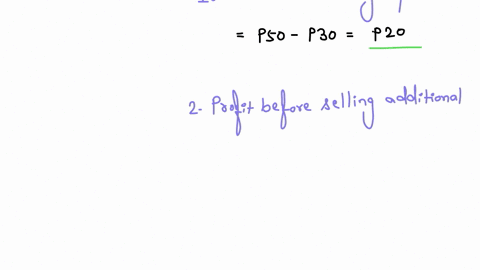 = P50 - P30 = P20
2. Profit before selling additional